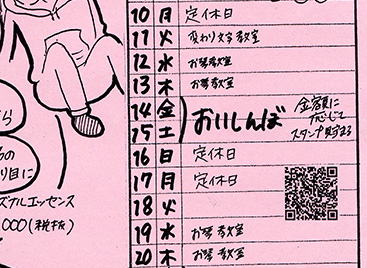 10 月 定休日
11 火 変わり文字教室
12 水 お琴教室
13 木 お琴教室
14 金
15 土
おいしんぼ
金額に
応じて
スタンプ貯まる
16 日 定休日
17 月 定休日
18 火
19 水 お琴教室
20 木 お琴教室
ら
り目に
ズナルエッセンス
,000(税抜)